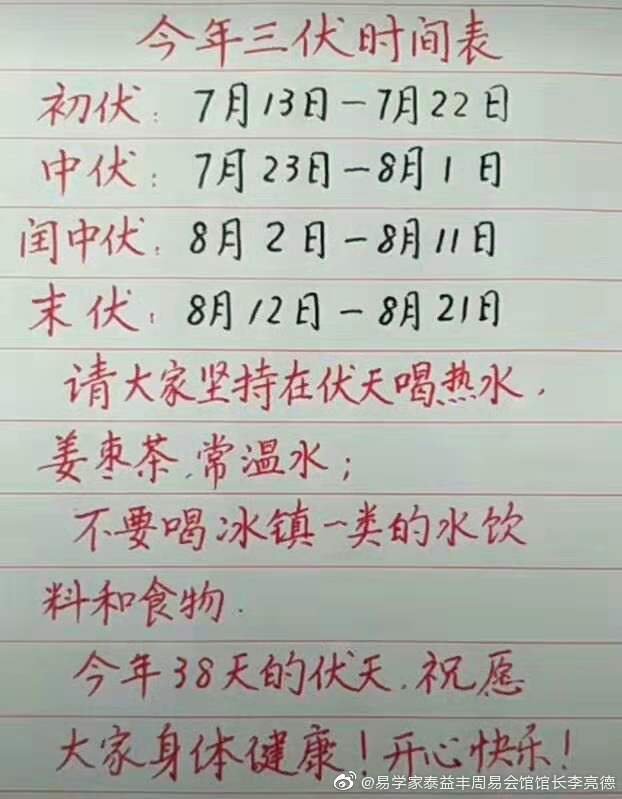 今年三伏时间表
初伏：7月13日－7月22日
中伏：7月23日－8月1日
闰中伏：8月2日－8月11日
末伏：8月12日－8月21日
请大家坚持在伏天喝热水，
姜枣茶.常温水；
不要喝冰镇一类的水饮
料和食物.
今年38天的伏天.祝愿
大家身体健康！开心快乐！
@易学家泰益丰周易会馆馆长李亮德